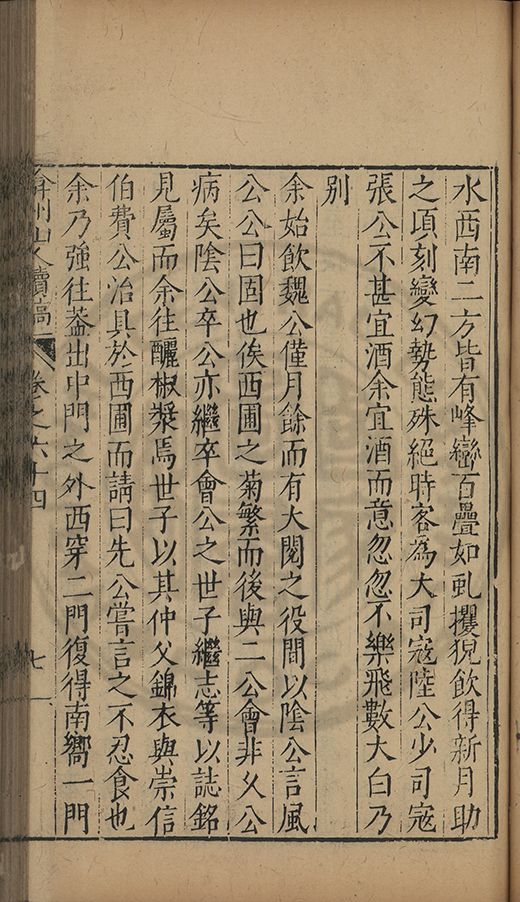 水西南二方皆有峰巒百疊如虬攫猊飲得新月助
之頃刻變幻勢態殊絕時客為大司寇陸公少司寇
張公不甚宜酒余宜酒而意忽忽不樂飛數大白乃
別
余始飲魏公僅月餘而有大閱之役間以陰公言風
公公曰固也俟西圃之菊繁而後與二公會非乂公
病矣陰公卒公亦繼卒會公之世子繼志等以誌銘
見屬而余往釃椒漿焉世子以其仲父錦衣與崇信
伯費公治具於西圃而請曰先公嘗言之不忍食也
余乃強往葢出中門之外西穿二門復得南嚮一門
弇州山人續稿
卷之六十四
七